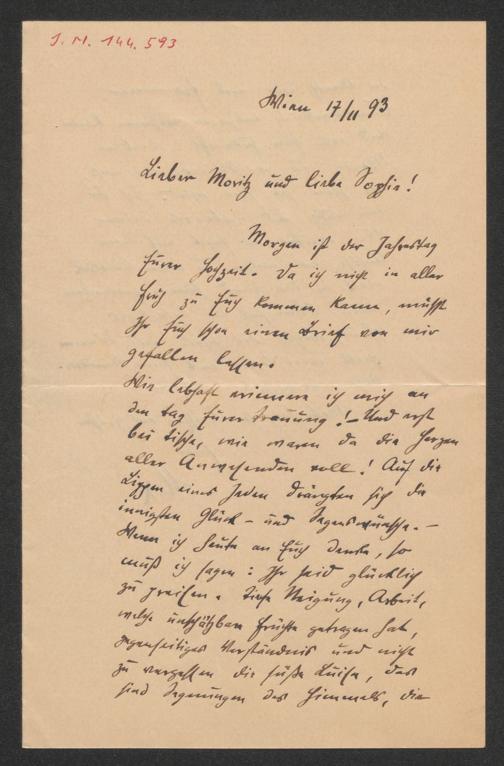 J. N. 144.593
Wien 17/II 93
Lieber Moritz und liebe Sophie!
Morgen ist der Jahrestag
Eurer Hochzeit. Da ich nicht in aller
Früh zu Euch kommen kann, müsst
Ihr Euch schon einen Brief von mir
gefallen lassen.
Wie lebhaft erinnere ich mich an
den Tag Eurer Trauung! – Und erst
bei Tische, wie waren da die Herzen
aller Anwesenden voll! Auf die
Lippen eines Jeden drängten sich die
innigsten Glück- und Segenswünsche. –
Wenn ich heute an Euch denke, so
muß ich sagen: Ihr seid glücklich
zu preisen. Tiefe Neigung, Arbeit,
welche unschätzbare Früchte getragen hat,
gegenseitiges Verständnis und nicht
zu vergessen die süße Luise, das
sind Segnungen des Himmels, die